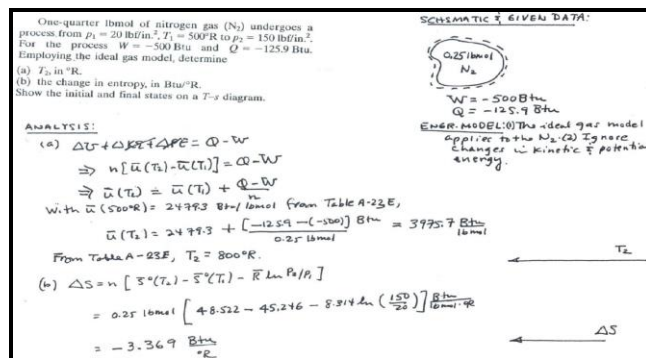 One-quarter lbmol of nitrogen gas (N₂) undergoes a
process from p₁ = 20 lbf/in.², T₁ = 500°R to p₂ = 150 lbf/in.²
For the process W = −500 Btu and Q = −125.9 Btu.
Employing the ideal gas model, determine
(a) T₂, in °R.
(b) the change in entropy, in Btu/°R.
Show the initial and final states on a T–s diagram.
SCHEMATIC & GIVEN DATA:
0.25 lbmol
N₂
W = -500 Btu
Q = -125.9 Btu
ENGR. MODEL: (1) The ideal gas model
applies to the N₂. (2) Ignore
changes in kinetic & potential
energy.
ANALYSIS:
(a) ΔU + ΔKE + ΔPE = Q - W
⇒ n[ū(T₂) - ū(T₁)] = Q - W
⇒ ū(T₂) = ū(T₁) + (Q - W)/n
With ū(500°R) = 2479.3 Btu/lbmol from Table A-23E,
ū(T₂) = 2479.3 + [-125.9 - (-500)] Btu / 0.25 lbmol = 3975.7 Btu/lbmol
From Table A-23E, T₂ = 800°R.
T₂
(b) ΔS = n [ s̄°(T₂) - s̄°(T₁) - R̄ ln P₂/P₁ ]
= 0.25 lbmol [ 48.522 - 45.246 - 8.314 ln (150/20) ] Btu/lbmol·°R
= -3.369 Btu/°R
ΔS